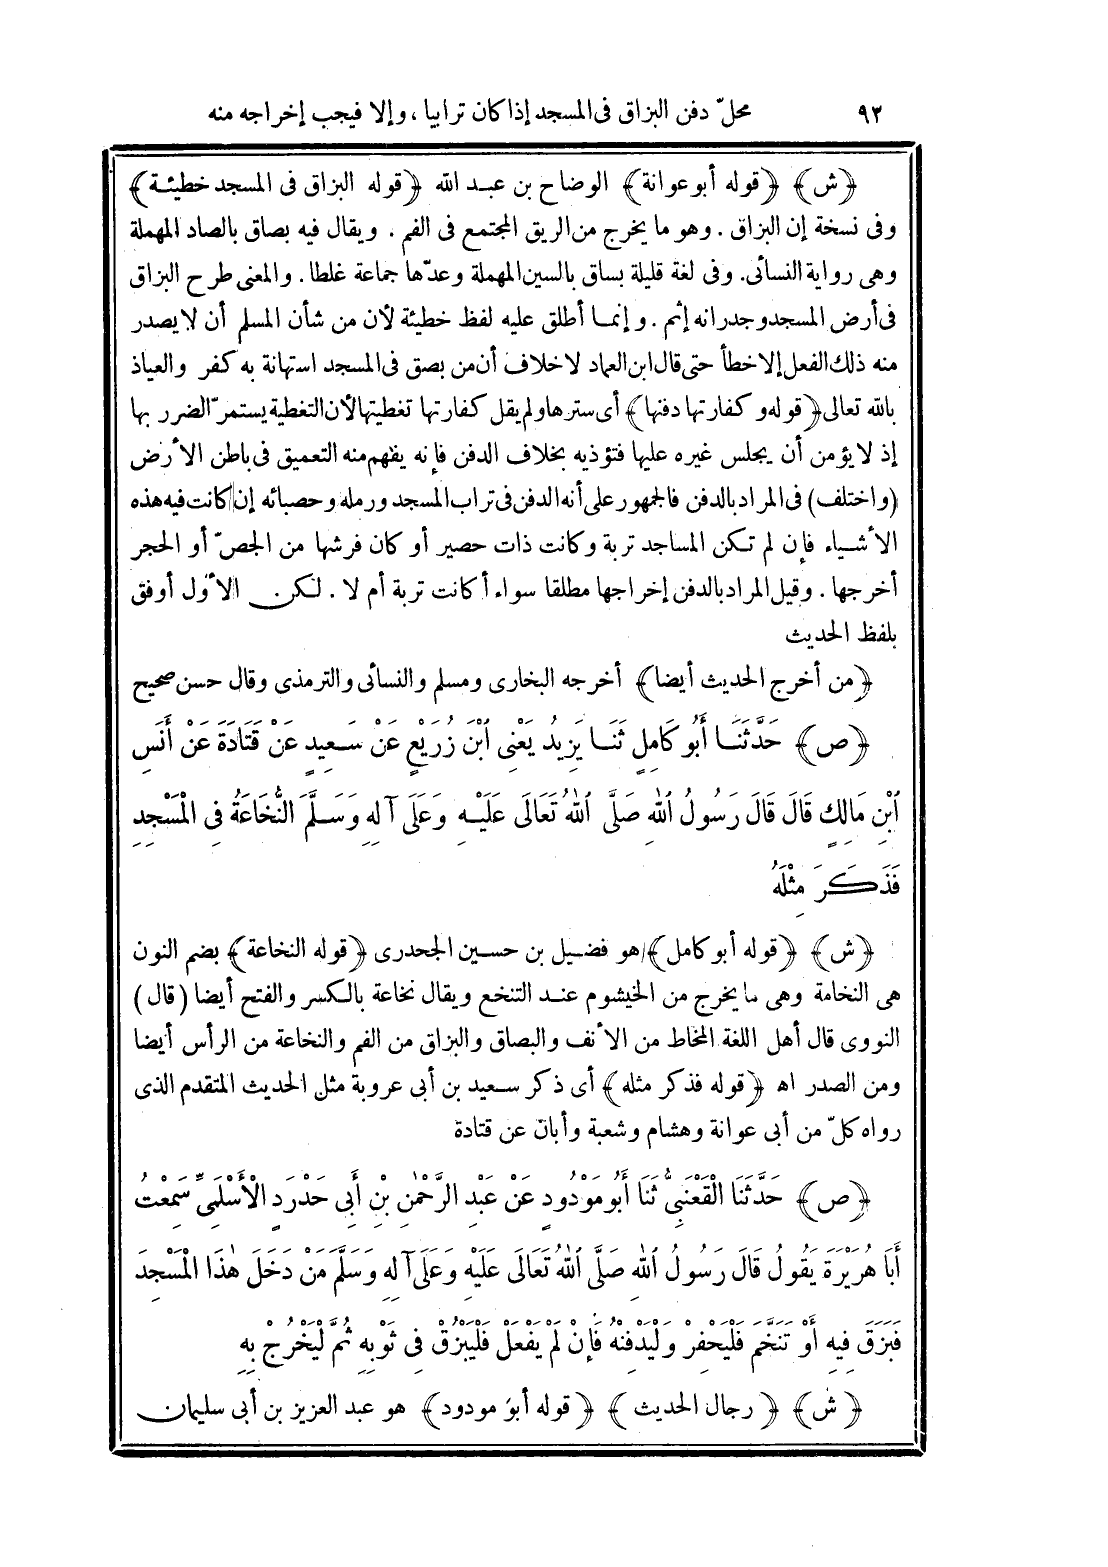 ٩٢ محلّ دفن البزاق فى المسجد إذا كان ترابيا ، وإلا فيجب إخراجه منه
﴿ش﴾ ﴿قوله أبو عوانة﴾ الوضاح بن عبد الله ﴿قوله البزاق فى المسجد خطيئة﴾
وفى نسخة إن البزاق . وهو ما يخرج من الريق المجتمع فى الفم . ويقال فيه بصاق بالصاد المهملة
وهى رواية النسائى . وفى لغة قليلة بساق بالسين المهملة وعدّها جماعة غلطا . والمعنى طرح البزاق
فى أرض المسجد وجدرانه إثم . وإنما أطلق عليه لفظ خطيئة لأن من شأن المسلم أن لا يصدر
منه ذلك الفعل إلا خطأ حتى قال ابن العماد لا خلاف أن من بصق فى المسجد استهانة به كفر والعياذ
بالله تعالى ﴿قوله وكفارتها دفنها﴾ أى سترها ولم يقل كفارتها تغطيتها لأن التغطية يستمرّ الضرر بها
إذ لا يؤمن أن يجلس غيره عليها فتؤذيه بخلاف الدفن فإنه يفهم منه التعميق فى باطن الأرض
(واختلف) فى المراد بالدفن فالجمهور على أنه الدفن فى تراب المسجد ورمله وحصبائه إن كانت فيه هذه
الأشياء فإن لم تكن المساجد تربة وكانت ذات حصير أو كان فرشها من الجصّ أو الحجر
أخرجها . وقيل المراد بالدفن إخراجها مطلقا سواء أكانت تربة أم لا . لكن الأول أوفق
بلفظ الحديث
﴿من أخرج الحديث أيضا﴾ أخرجه البخارى ومسلم والنسائى والترمذى وقال حسن صحيح
﴿ص﴾ حَدَّثَنَا أَبُو كَامِلٍ ثَنَا يَزِيدُ يَعْنِى ابْنَ زُرَيْعٍ عَنْ سَعِيدٍ عَنْ قَتَادَةَ عَنْ أَنَسِ
ابْنِ مَالِكٍ قَالَ قَالَ رَسُولُ اللهِ صَلَّى اللهُ تَعَالَى عَلَيْهِ وَعَلَى آلِهِ وَسَلَّمَ النُّخَاعَةُ فِى الْمَسْجِدِ
فَذَكَرَ مِثْلَهُ
﴿ش﴾ ﴿قوله أبو كامل﴾ هو فضيل بن حسين الجحدرى ﴿قوله النخاعة﴾ بضم النون
هى النخامة وهى ما يخرج من الخيشوم عند التنخع ويقال نخاعة بالكسر والفتح أيضا (قال)
النووى قال أهل اللغة المخاط من الأنف والبصاق والبزاق من الفم والنخاعة من الرأس أيضا
ومن الصدر اه ﴿قوله فذكر مثله﴾ أى ذكر سعيد بن أبى عروبة مثل الحديث المتقدم الذى
رواه كلّ من أبى عوانة وهشام وشعبة وأبان عن قتادة
﴿ص﴾ حَدَّثَنَا الْقَعْنَبِىُّ ثَنَا أَبُو مَوْدُودٍ عَنْ عَبْدِ الرَّحْمٰنِ بْنِ أَبِى حَدْرَدٍ الْأَسْلَمِىِّ سَمِعْتُ
أَبَا هُرَيْرَةَ يَقُولُ قَالَ رَسُولُ اللهِ صَلَّى اللهُ تَعَالَى عَلَيْهِ وَعَلَى آلِهِ وَسَلَّمَ مَنْ دَخَلَ هٰذَا الْمَسْجِدَ
فَبَزَقَ فِيهِ أَوْ تَنَخَّمَ فَلْيَحْفِرْ وَلْيَدْفِنْهُ فَإِنْ لَمْ يَفْعَلْ فَلْيَبْزُقْ فِى ثَوْبِهِ ثُمَّ لْيَخْرُجْ بِهِ
﴿ش﴾ ﴿رجال الحديث﴾ ﴿قوله أبو مودود﴾ هو عبد العزيز بن أبى سليمان